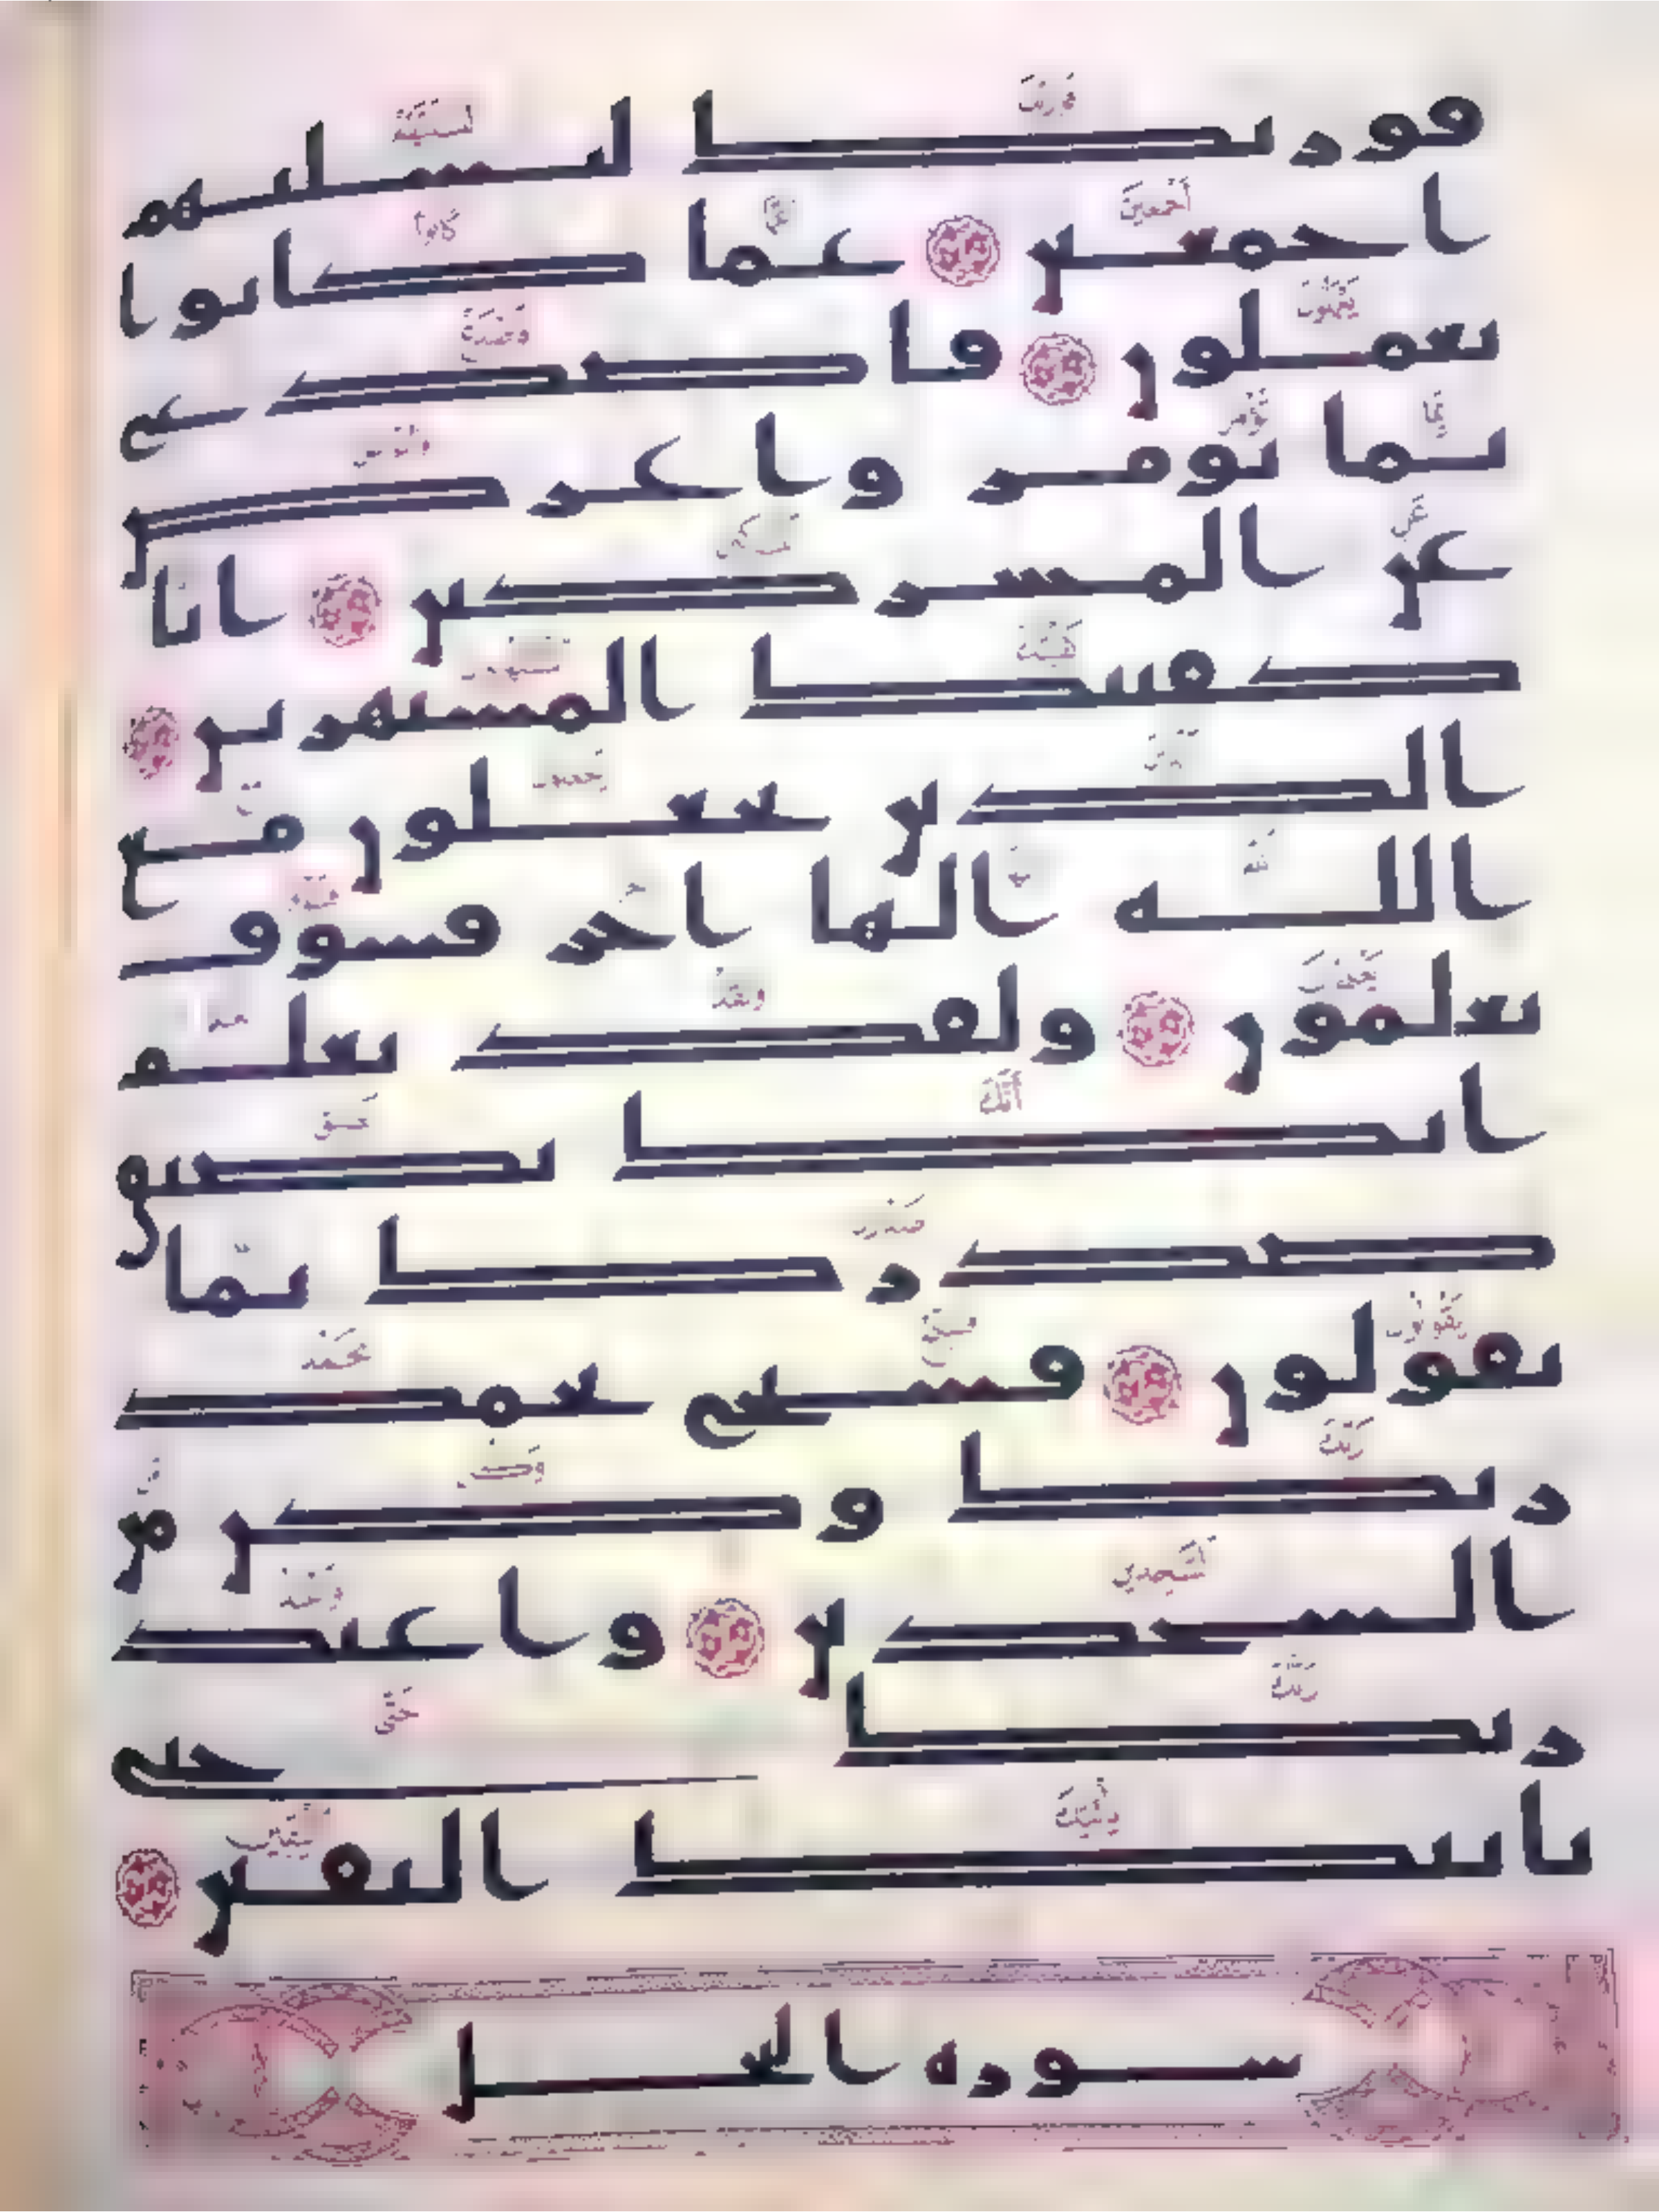 فوربك لنسلنهم
اجمعين عما كانوا
يعملون فاصدع
بما تومر واعرض
عن المشركين انا
كفينك المستهزين
الذين يجعلون مع
الله الها اخر فسوف
يعلمون ولقد نعلم
انك يضيق
صدرك بما
يقولون فسبح بحمد
ربك وكن من
السجدين واعبد
ربك حتى
ياتيك اليقين
سورة النحل